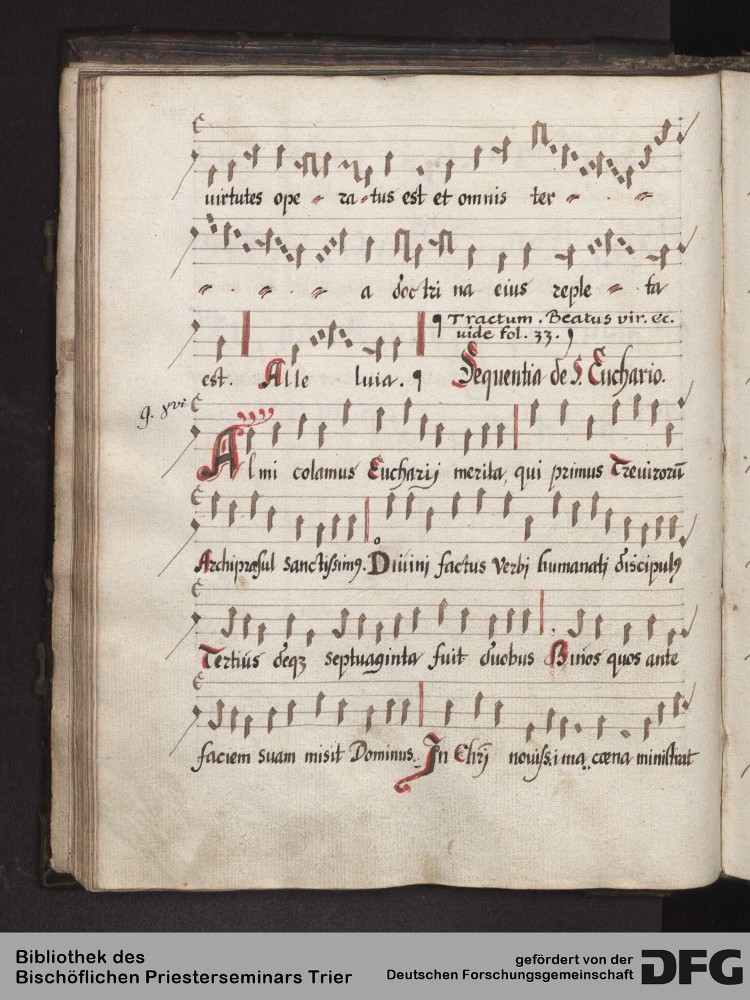 virtutes ope ra tus est et omnis ter
a doctri na eius reple ta
¶ Tractum. Beatus vir. &c.
vide fol. 33.
est. Alle luia. ¶ Sequentia de S. Euchario.
g. xvi
Almi colamus Eucharij merita, qui primus Trevirorū
Archipræsul sanctissimꝰ. Divini factus Verbi humanati discipulꝰ
Tertius deqꝫ septuaginta fuit duobus Binos quos ante
faciem suam misit Dominus. In Chrī novissima cœna ministrat
Bibliothek des
Bischöflichen Priesterseminars Trier
gefördert von der
Deutschen Forschungsgemeinschaft
DFG